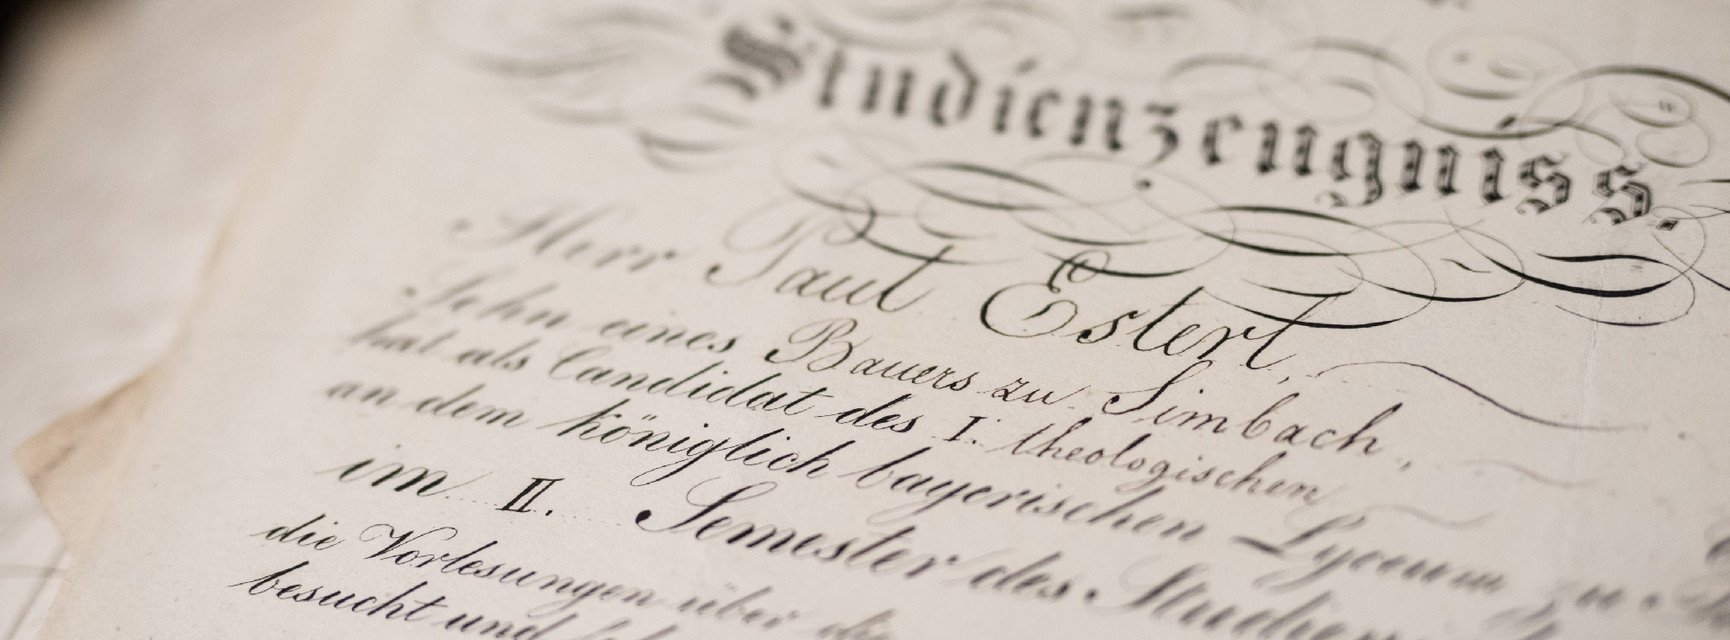 Studienzeugniss.
Herr Paul Estert,
Sohn eines Bauers zu Simbach,
hat als Candidat des I. theologischen
an dem königlich bayerischen Lyceum zu
im II. Semester des Studien
die Vorlesungen über die
besucht und